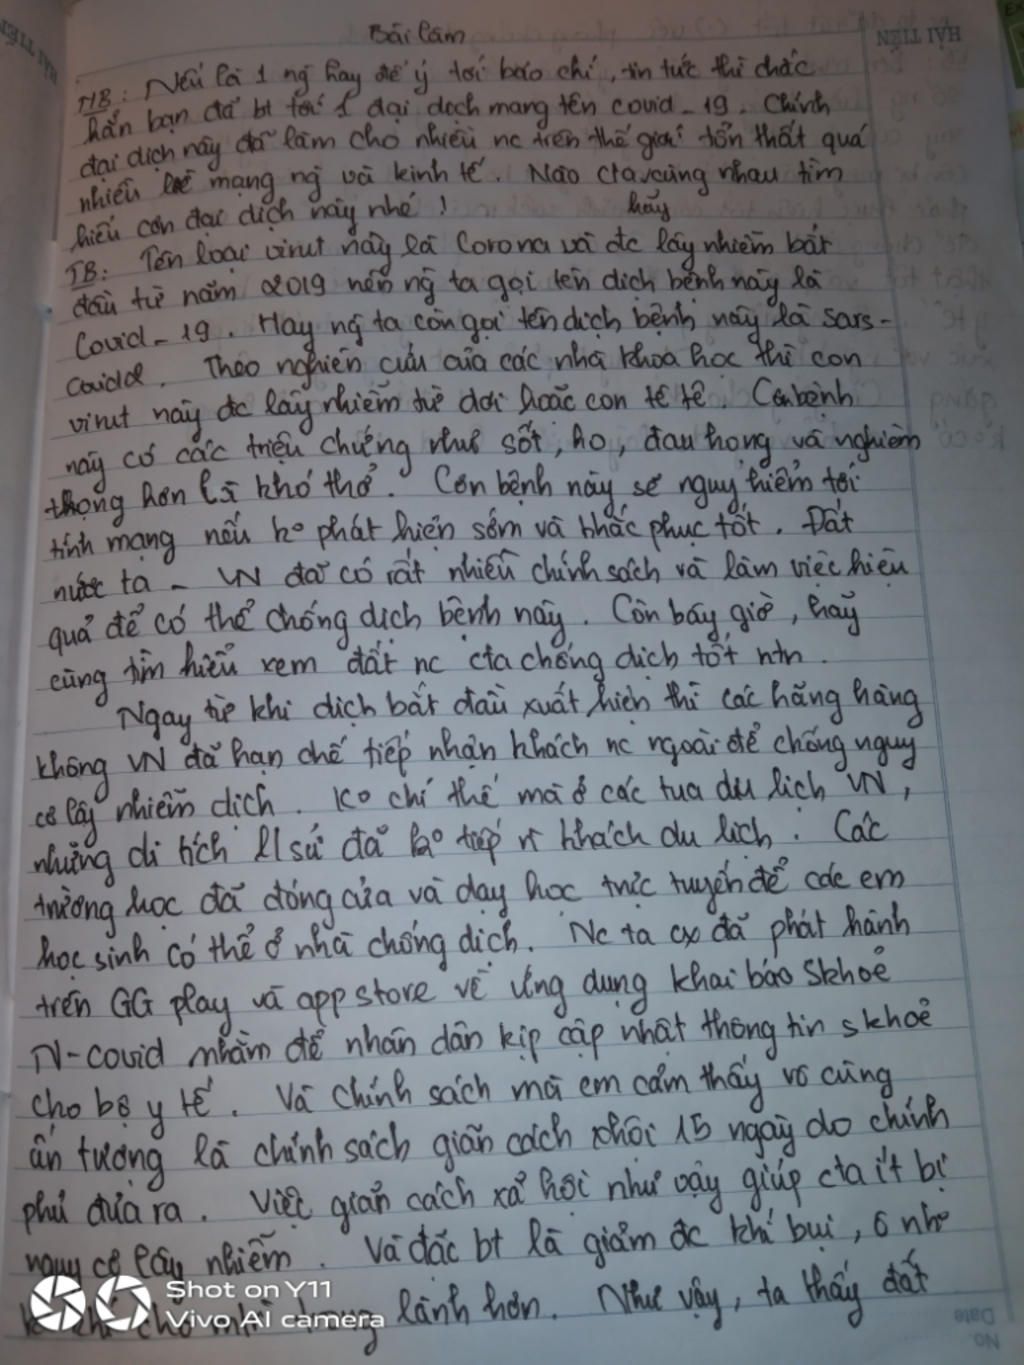 Bài làm
MB: Nếu là 1 ng hay để ý tới báo chí, tin tức thì chắc
hẳn bạn đã bt tới 1 đại dịch mang tên covid-19. Chính
đại dịch này đã làm cho nhiều nc trên thế giới tổn thất quá
nhiều về mạng ng và kinh tế. Nào cta cùng nhau tìm
hãy
hiểu cơn đại dịch này nhé!
TB: Tên loại virut này là Corona và đc lây nhiễm bắt
đầu từ năm 2019 nên ng ta gọi tên dịch bệnh này là
Covid-19. Hay ng ta còn gọi tên dịch bệnh này là sars-
. Theo nghiên cứu của các nhà khoa học thì con
virut này đc lây nhiễm từ dơi hoặc con tê tê. Cơn bệnh
này có các triệu chứng như sốt, ho, đau họng và nghiêm
trọng hơn là khó thở. Cơn bệnh này sẽ nguy hiểm tới
tính mạng nếu ko phát hiện sớm và khắc phục tốt. Đất
nước ta - VN đã có rất nhiều chính sách và làm việc hiệu
quả để có thể chống dịch bệnh này. Còn bây giờ, hãy
cùng tìm hiểu xem đất nc cta chống dịch tốt ntn.
Ngay từ khi dịch bắt đầu xuất hiện thì các hãng hàng
không VN đã hạn chế tiếp nhận khách nc ngoài để chống nguy
cơ lây nhiễm dịch. Ko chỉ thế mà ở các tua du lịch VN,
những di tích lsử đã ko tiếp khách du lịch. Các
trường học đã đóng cửa và dạy học trực tuyến để các em
học sinh có thể ở nhà chống dịch. Nc ta cx đã phát hành
trên GG play và appstore về ứng dụng khai báo skhoẻ
N-covid nhằm để nhân dân kịp cập nhật thông tin skhoẻ
cho bộ y tế. Và chính sách mà em cảm thấy vô cùng
ấn tượng là chính sách giãn cách xhội 15 ngày do chính
phủ đưa ra. Việc giãn cách xã hội như vậy giúp cta ít bị
nguy cơ lây nhiễm. Và đặc bt là giảm đc khí bụi, ô nh
trong lành hơn. Như vậy, ta thấy đất
Shot on Y11
Vivo AI camera
HẢI TIẾN
HẢI TIẾN
Date
No.